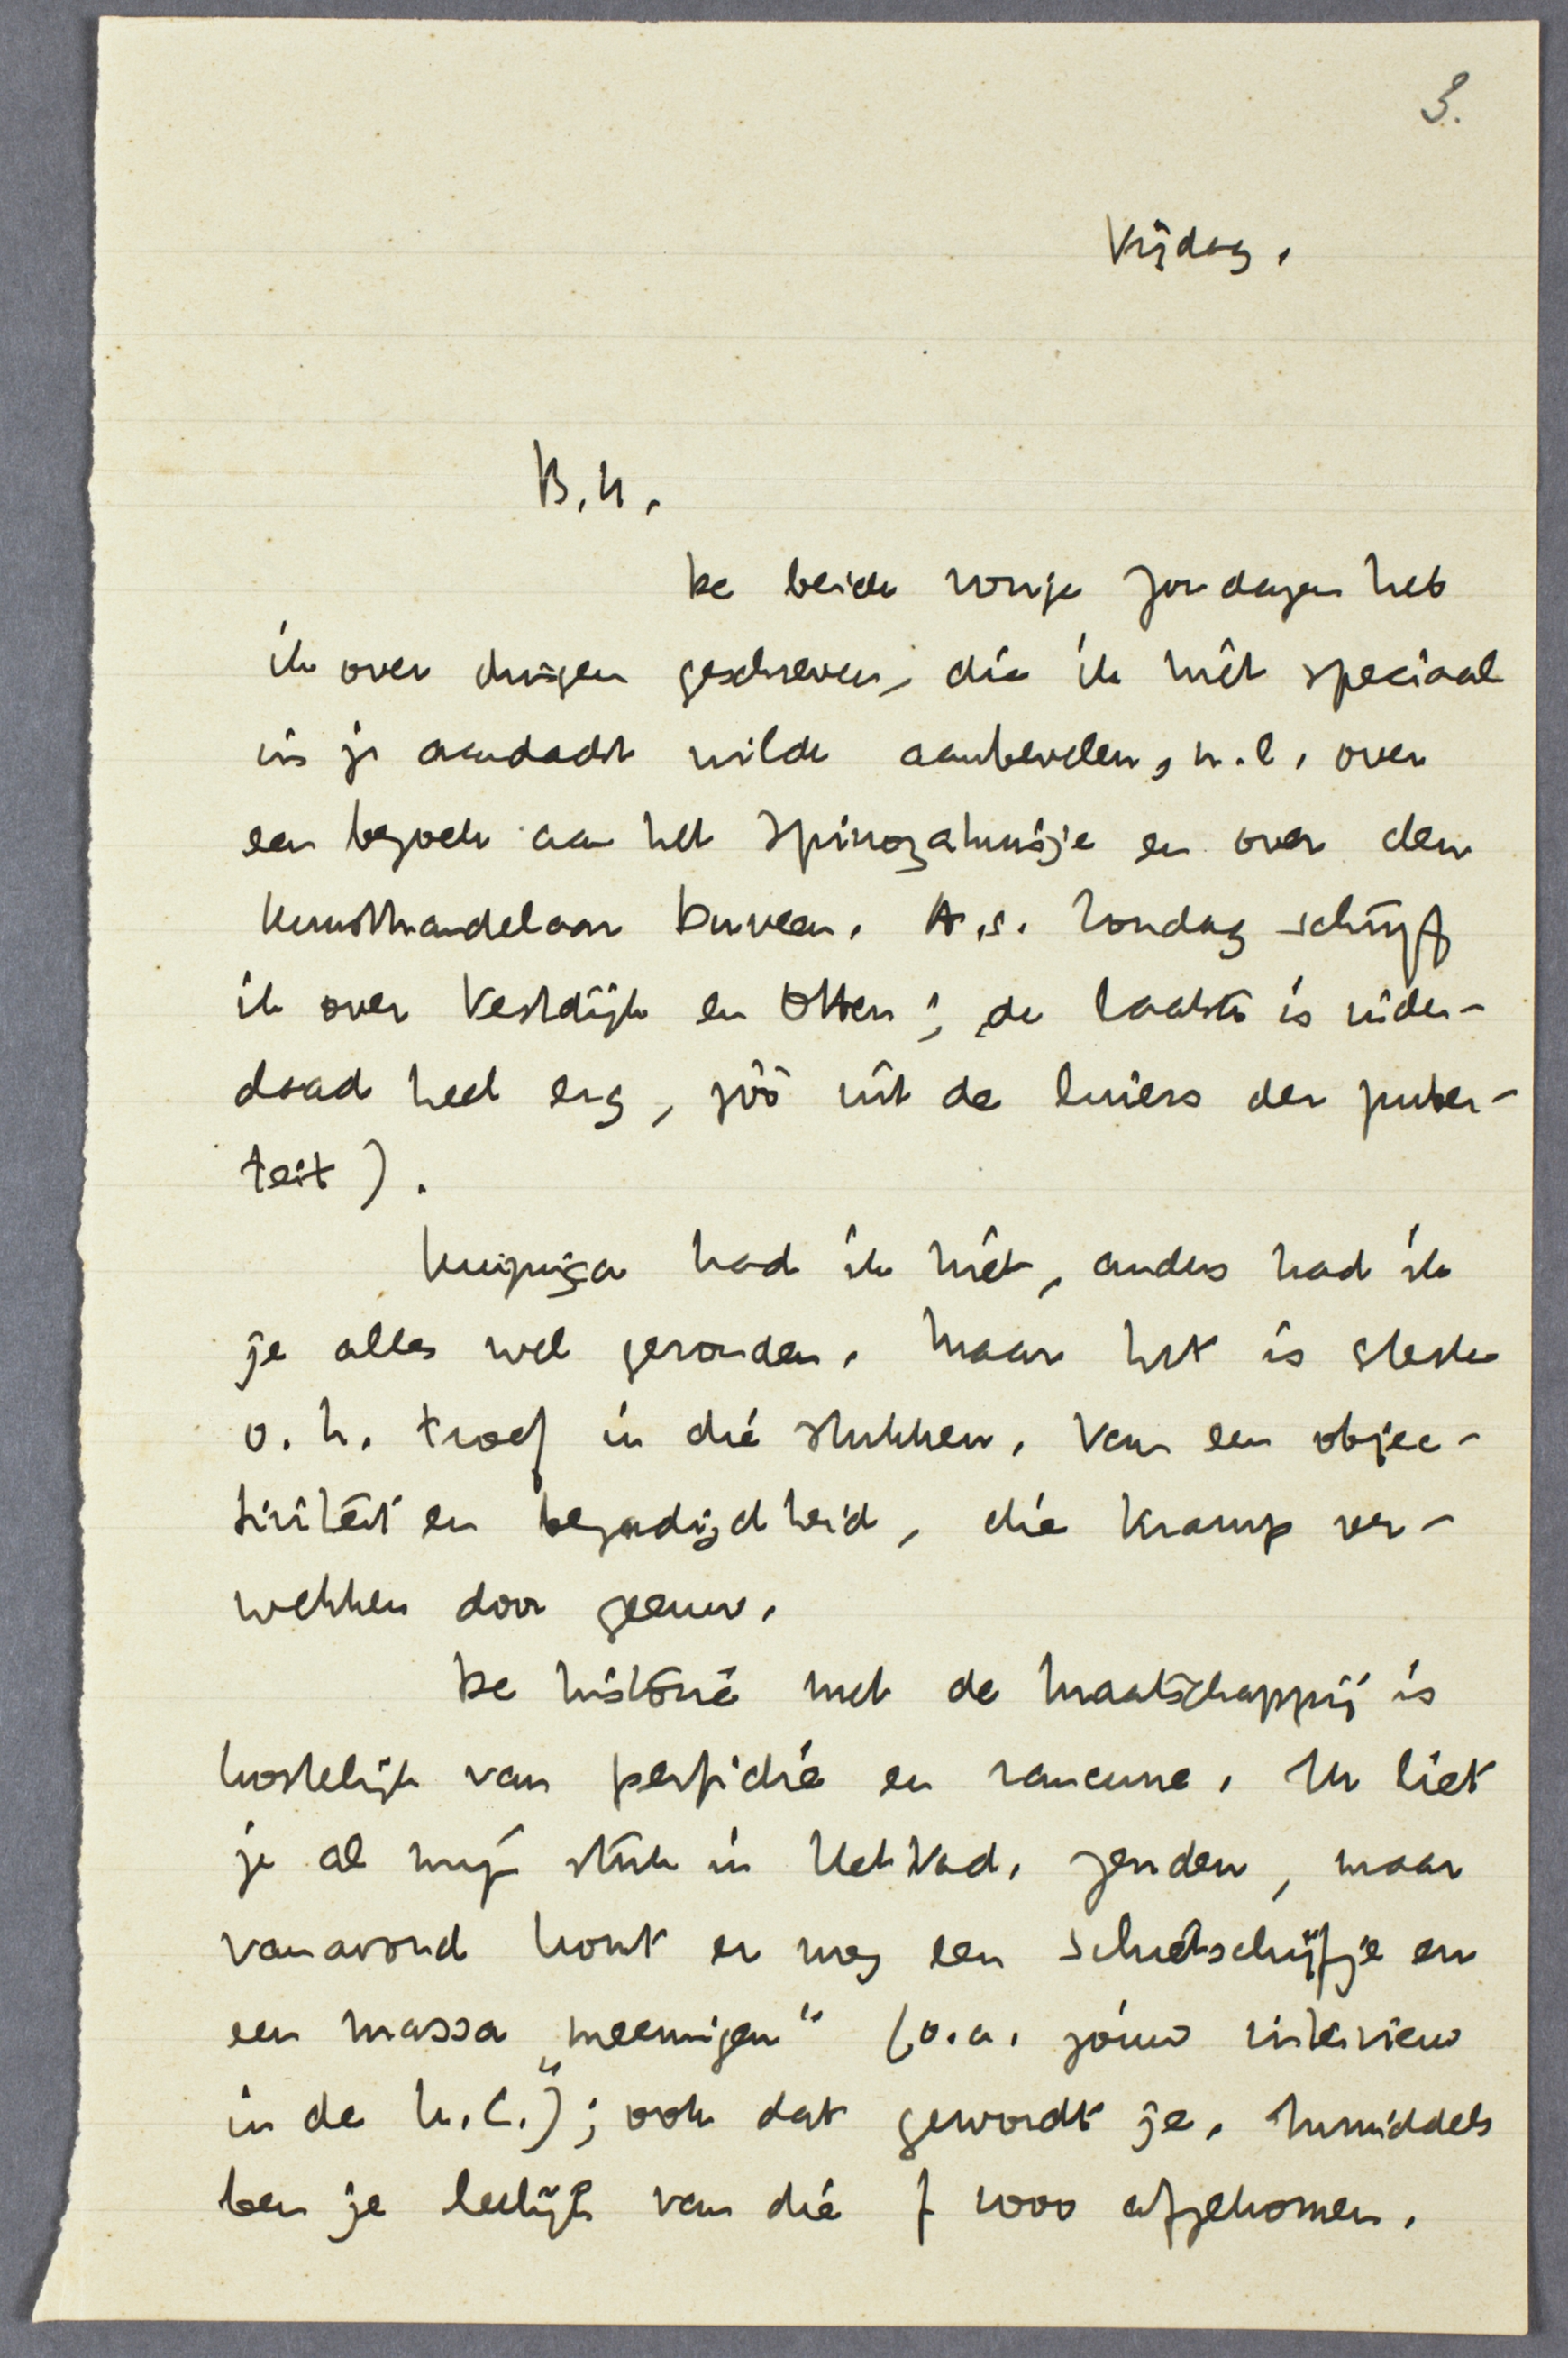 3.
Vrijdag.
B.H.
De beide vorige Zondagen heb
ik over dingen geschreven, die ik niet speciaal
in je aandacht wilde aanbevelen, n.l. over
een bezoek aan het Spinozahuisje en over den
kunsthandelaar Duveen. A.s. Zondag schrijf
ik over Vestdijk en Otten; de laatste is inder-
daad heel erg, zóó uit de luiers der puber-
teit).
Huizinga had ik niet, anders had ik
je alles wel gezonden. Maar het is sterke
o.h. troef in die stukken. Van een objec-
tiviteit en bezadigdheid, die kramp ver-
wekken door geeuw.
De historie met de Maatschappij is
kostelijk van perfidie en rancune. Ik liet
je al mijn stuk in Het Vad. zenden, maar
vanavond komt er nog een schietschijfje en
een massa "meeningen" (o.a. jóuw interview
in de H.C.); ook dat gewordt je. Inmiddels
ben je leelijk van die f 1000 afgekomen.